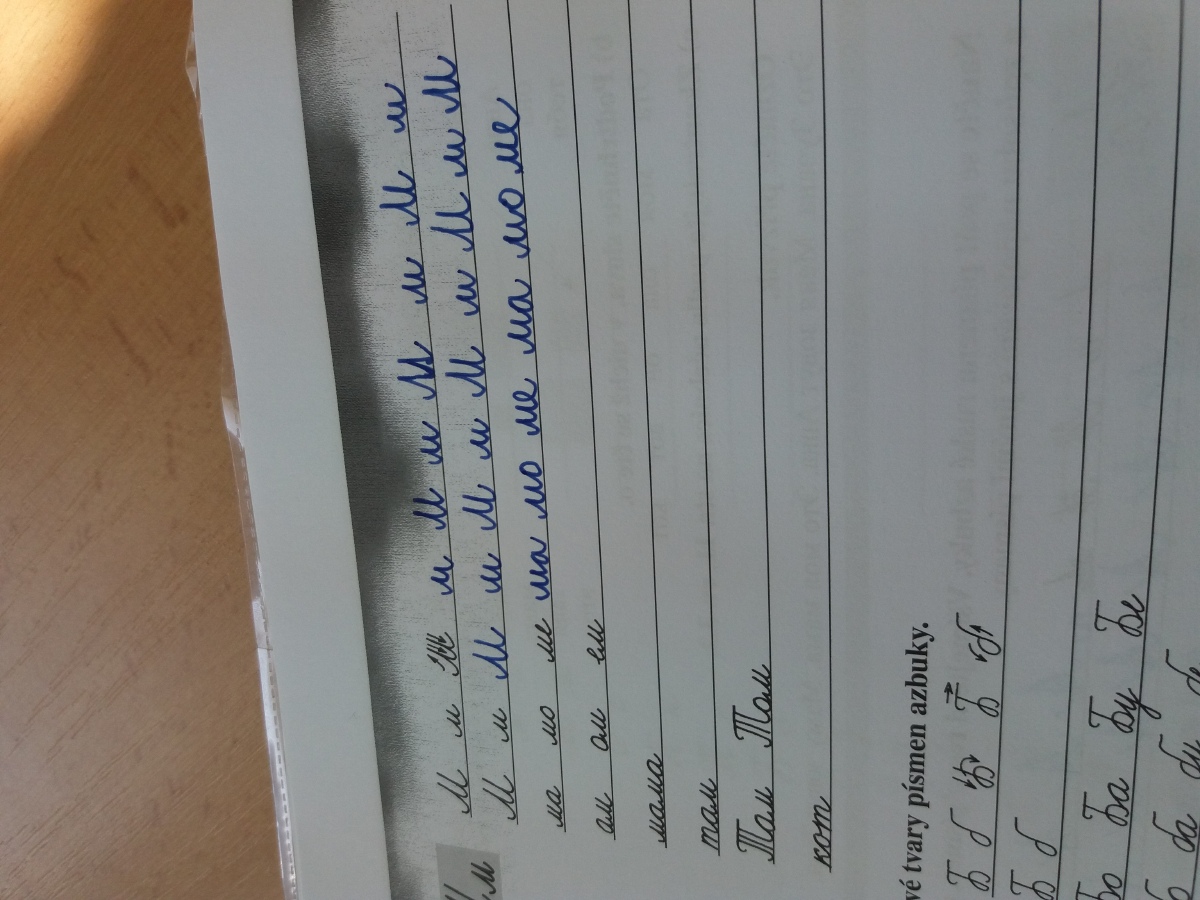 М м
М м М м М м М м М м
М м М м М м М м М м М
ма мо ме ма мо ме ма мо ме
ам ом ем
мама
там
Там Том
кот
vé tvary písmen azbuky.
Б б Б Б б
Б б
Бо Ба Бу Бе
ба